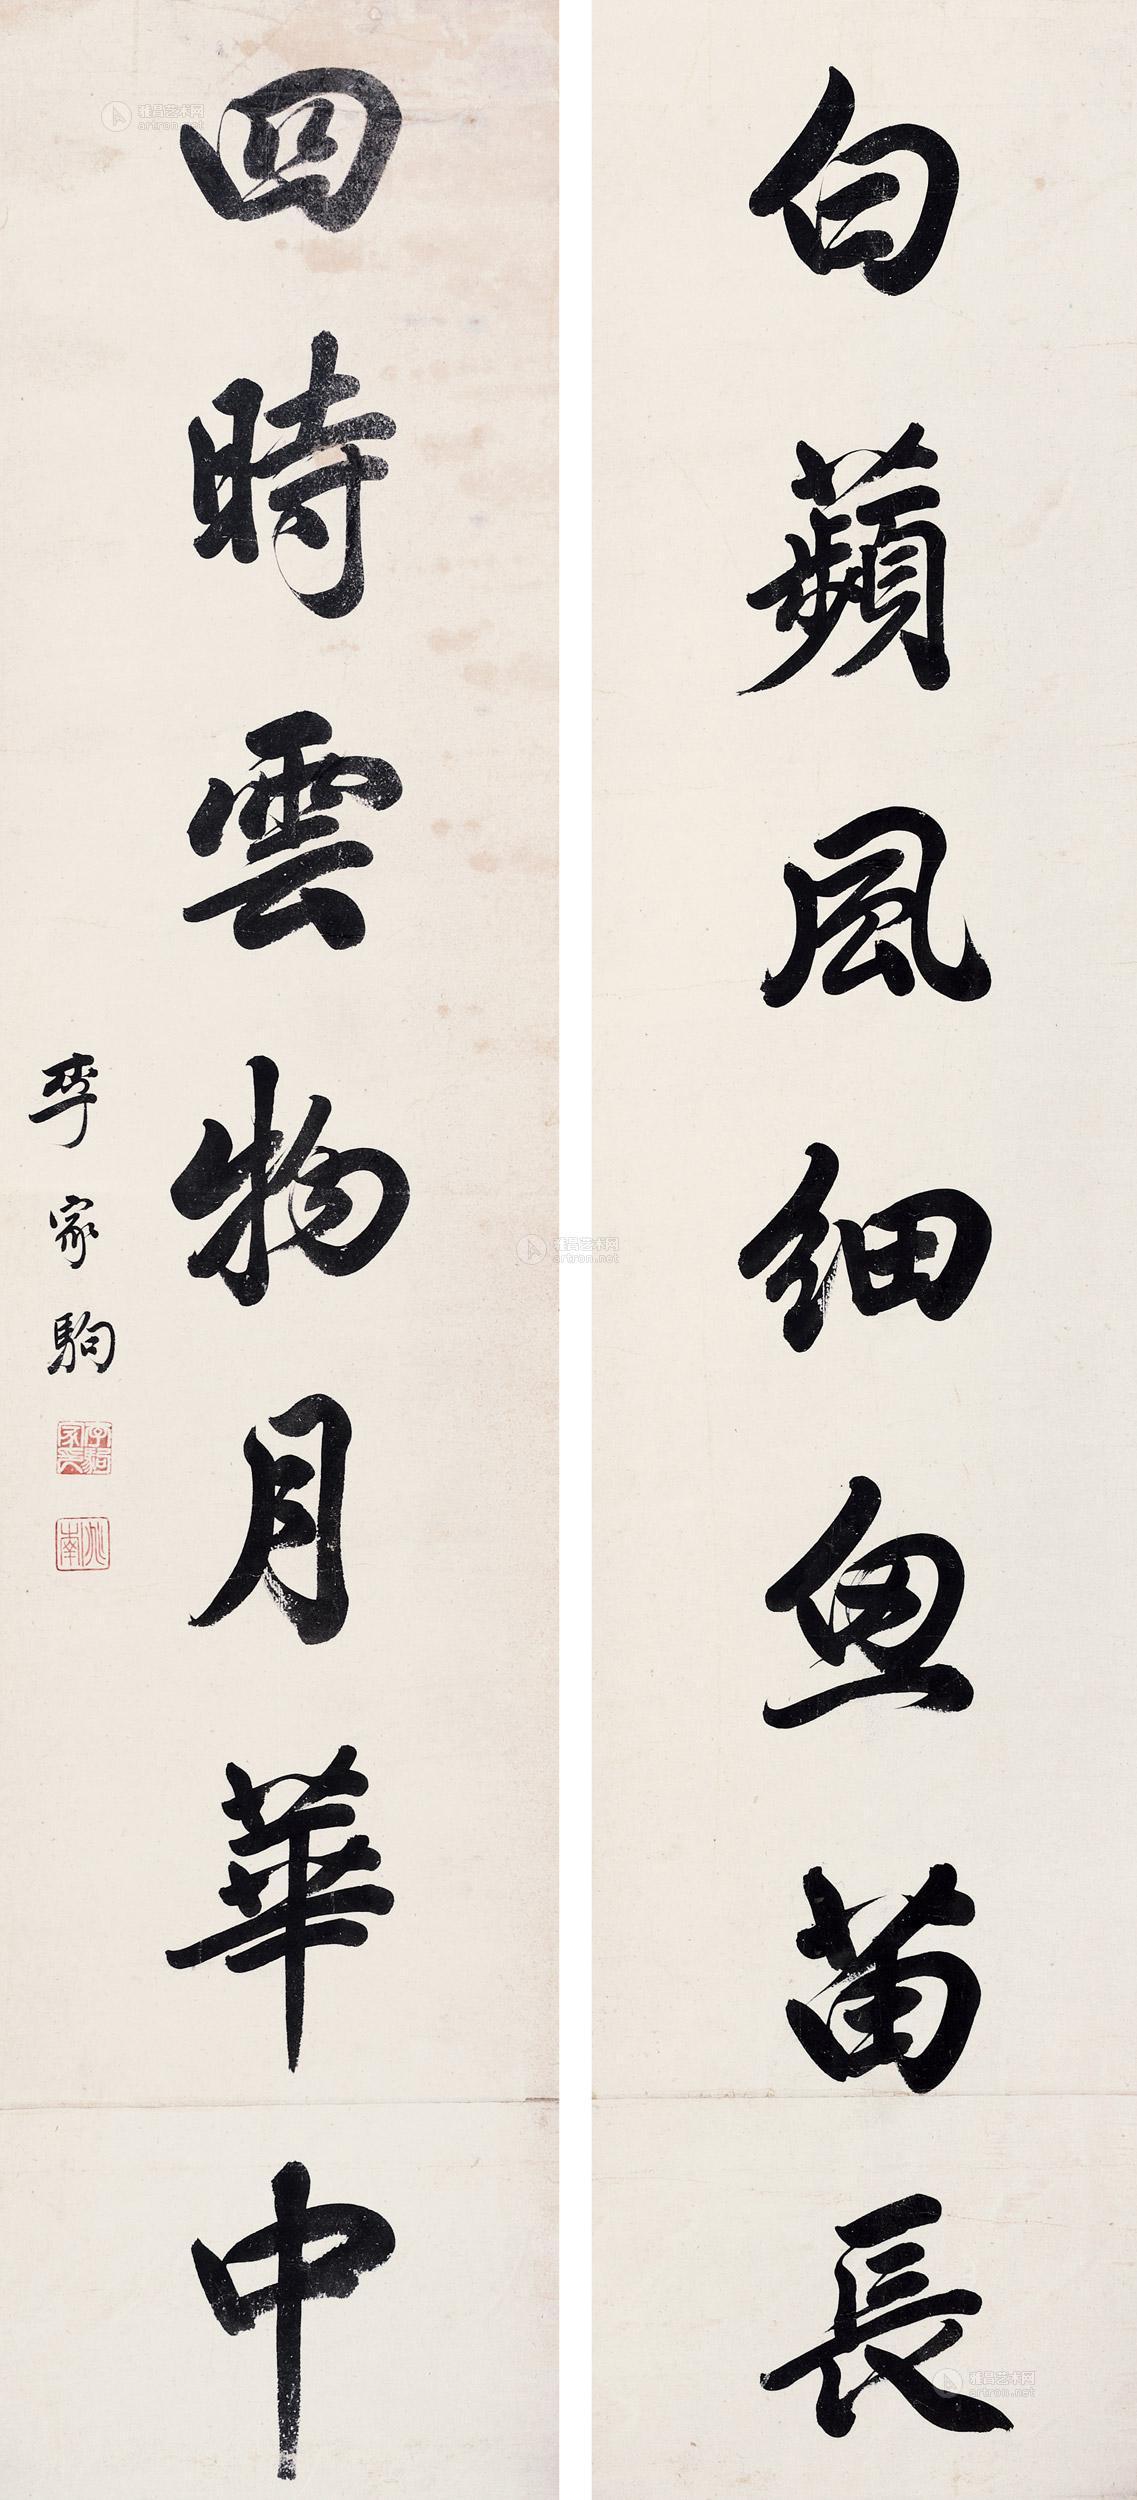 白蘋風細魚苗長
四時雲物月華中
李家駒
雅昌艺术网
artron.net
雅昌艺术网
artron.net
雅昌艺术网
artron.net